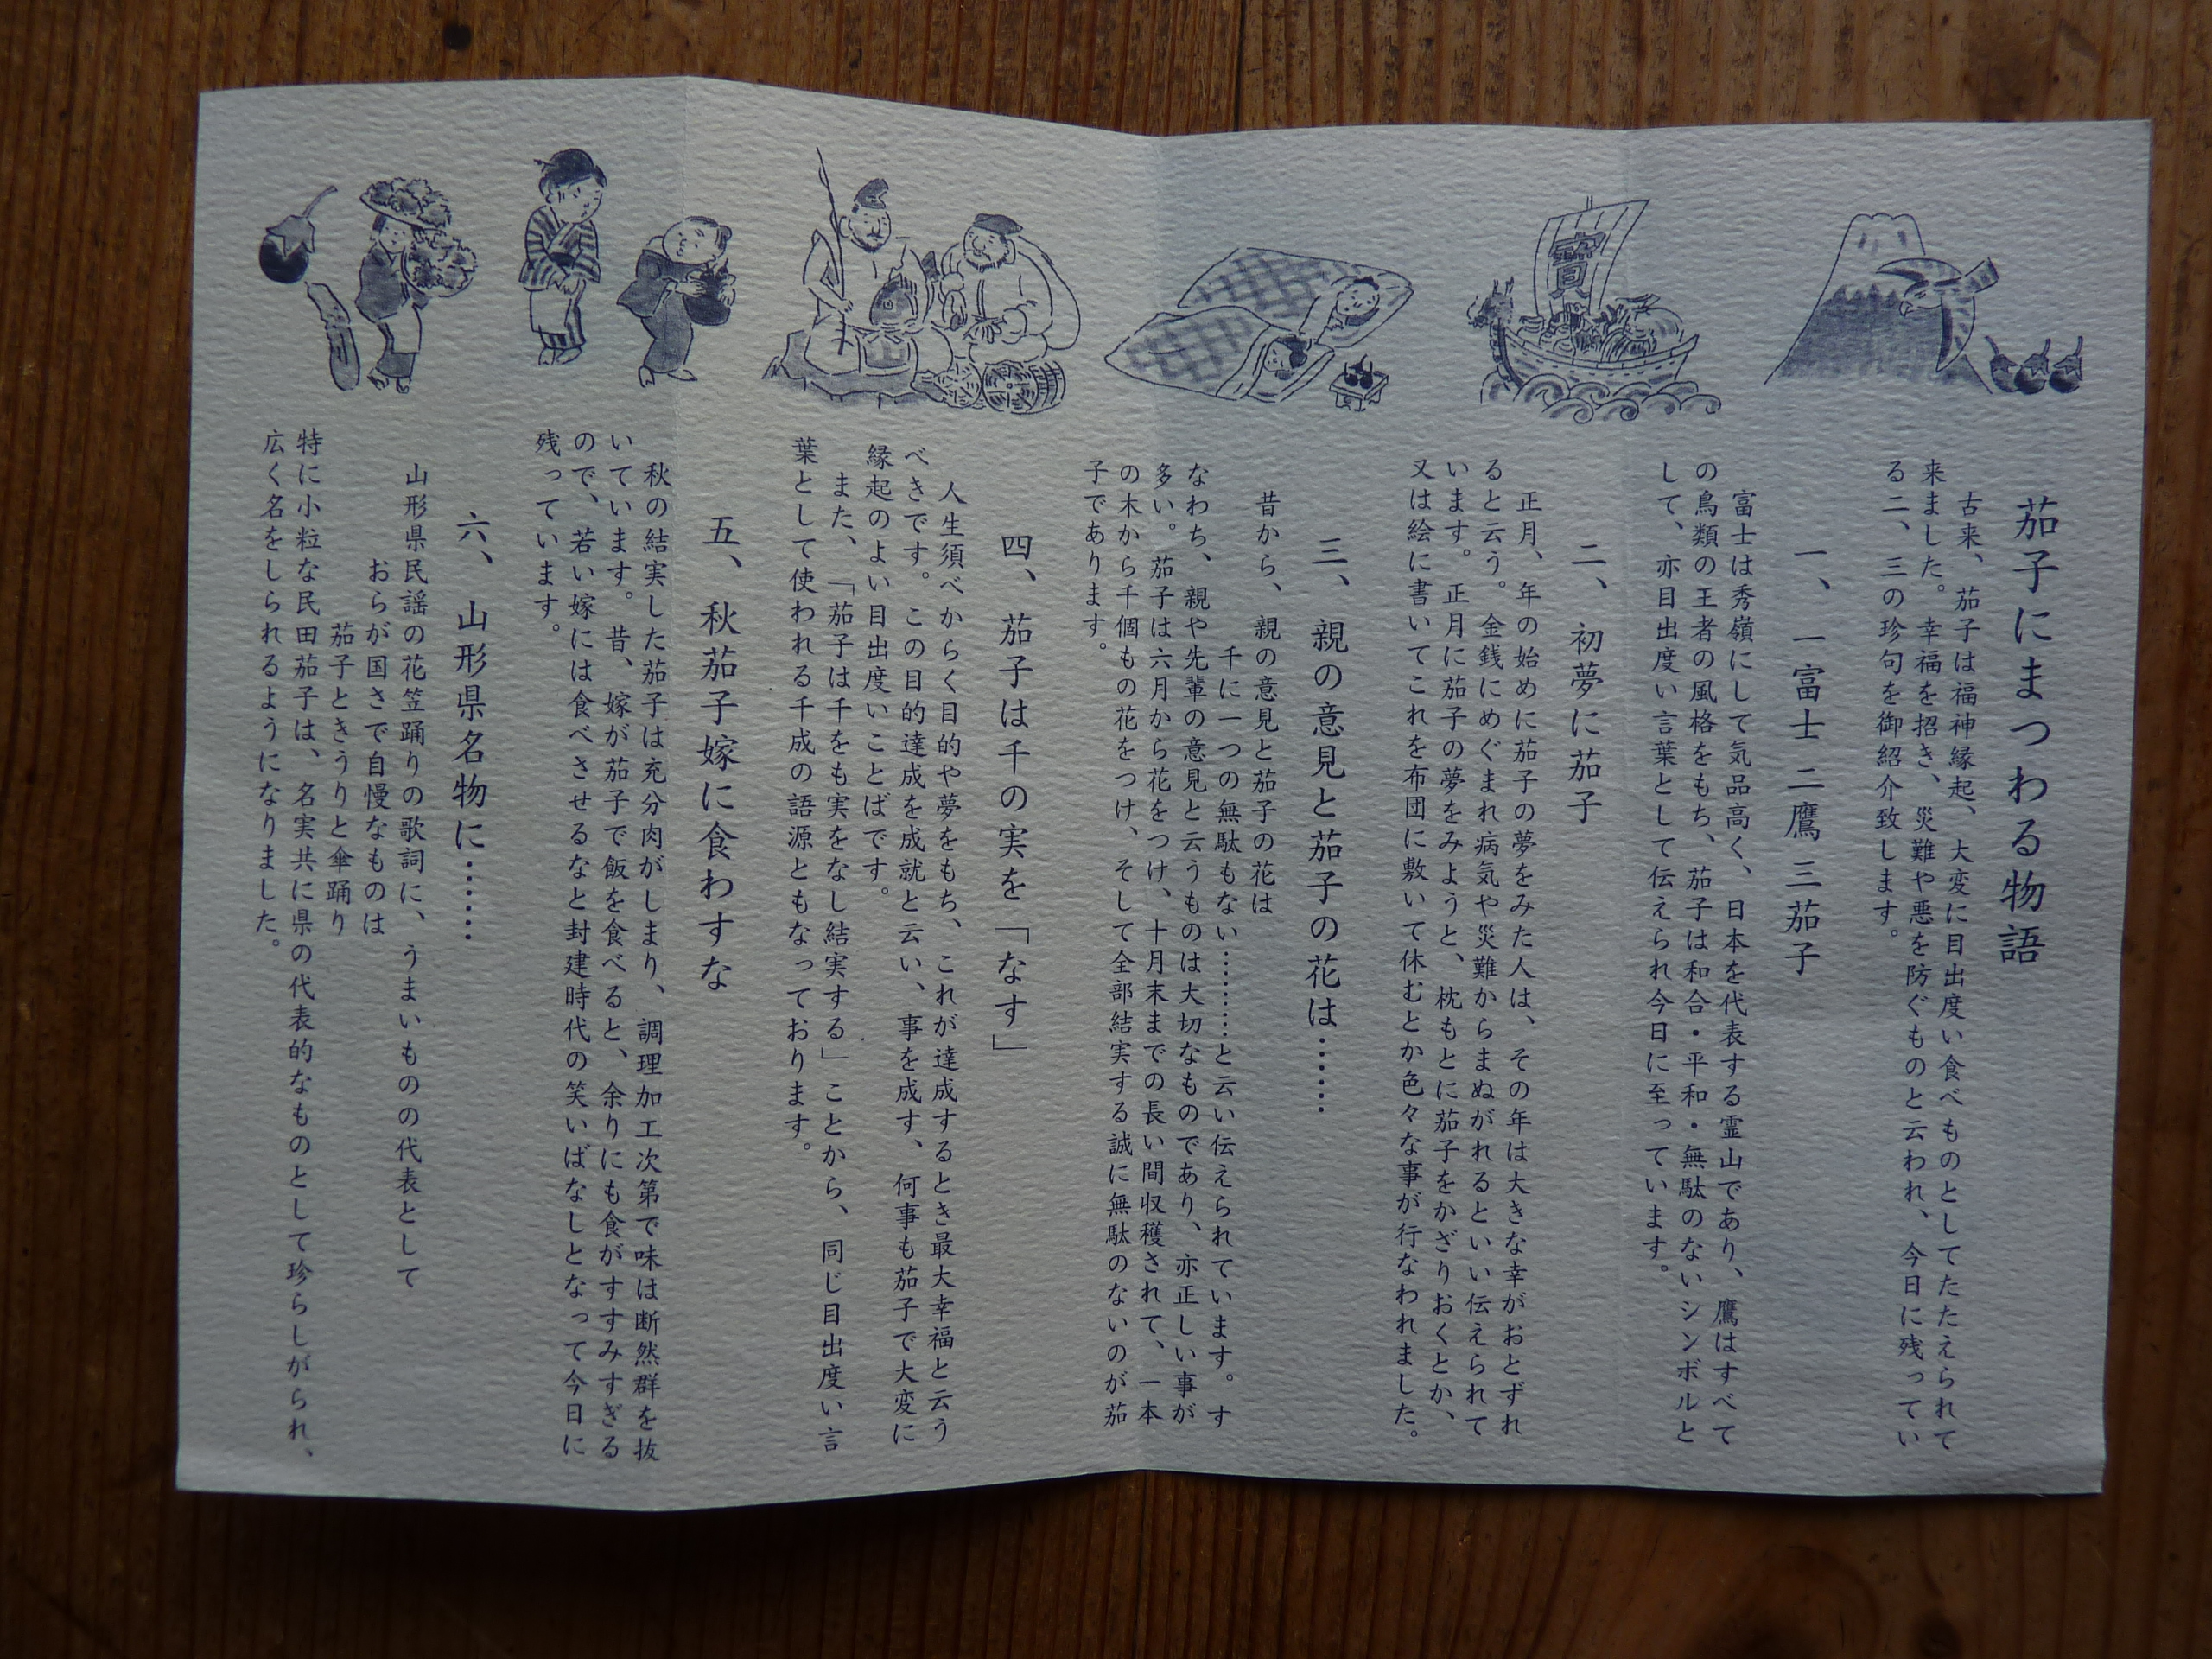 寶
茄子にまつわる物語
古来、茄子は福神縁起、大変に目出度い食べものとしてたたえられて
来ました。幸福を招き、災難や悪を防ぐものと云われ、今日に残ってい
る二、三の珍句を御紹介致します。
一、一富士 二鷹 三茄子
富士は秀嶺にして気品高く、日本を代表する霊山であり、鷹はすべて
の鳥類の王者の風格をもち、茄子は和合・平和・無駄のないシンボルと
して、亦目出度い言葉として伝えられ今日に至っています。
二、初夢に茄子
正月、年の始めに茄子の夢をみた人は、その年は大きな幸がおとずれ
ると云う。金銭にめぐまれ病気や災難からまぬがれるといい伝えられて
います。正月に茄子の夢をみようと、枕もとに茄子をかざりおくとか、
又は絵に書いてこれを布団に敷いて休むとか色々な事が行なわれました。
三、親の意見と茄子の花は……
昔から、親の意見と茄子の花は
千に一つの無駄もない………と云い伝えられています。す
なわち、親や先輩の意見と云うものは大切なものであり、亦正しい事が
多い。茄子は六月から花をつけ、十月末までの長い間収穫されて、一本
の木から千個もの花をつけ、そして全部結実する誠に無駄のないのが茄
子であります。
四、茄子は千の実を「なす」
人生須べからく目的や夢をもち、これが達成するとき最大幸福と云う
べきです。この目的達成を成就と云い、事を成す、何事も茄子で大変に
縁起のよい目出度いことばです。
また、「茄子は千をも実をなし結実する」ことから、同じ目出度い言
葉として使われる千成の語源ともなっております。
五、秋茄子嫁に食わすな
秋の結実した茄子は充分肉がしまり、調理加工次第で味は断然群を抜
いています。昔、嫁が茄子で飯を食べると、余りにも食がすすみすぎる
ので、若い嫁には食べさせるなと封建時代の笑いばなしとなって今日に
残っています。
六、山形県名物に……
山形県民謡の花笠踊りの歌詞に、うまいものの代表として
おらが国さで自慢なものは
茄子ときうりと傘踊り
特に小粒な民田茄子は、名実共に県の代表的なものとして珍らしがられ、
広く名をしられるようになりました。